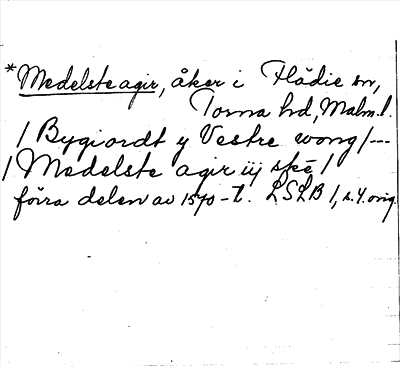 *Medelste agir, åker i Flädie sn,
Torna hd, Malm.l.
/ Bygiordt y Vestre wong /---
/ Medelste agir iij skē /
förra delen av 1570-t. LSLB 1, s.4. orig.